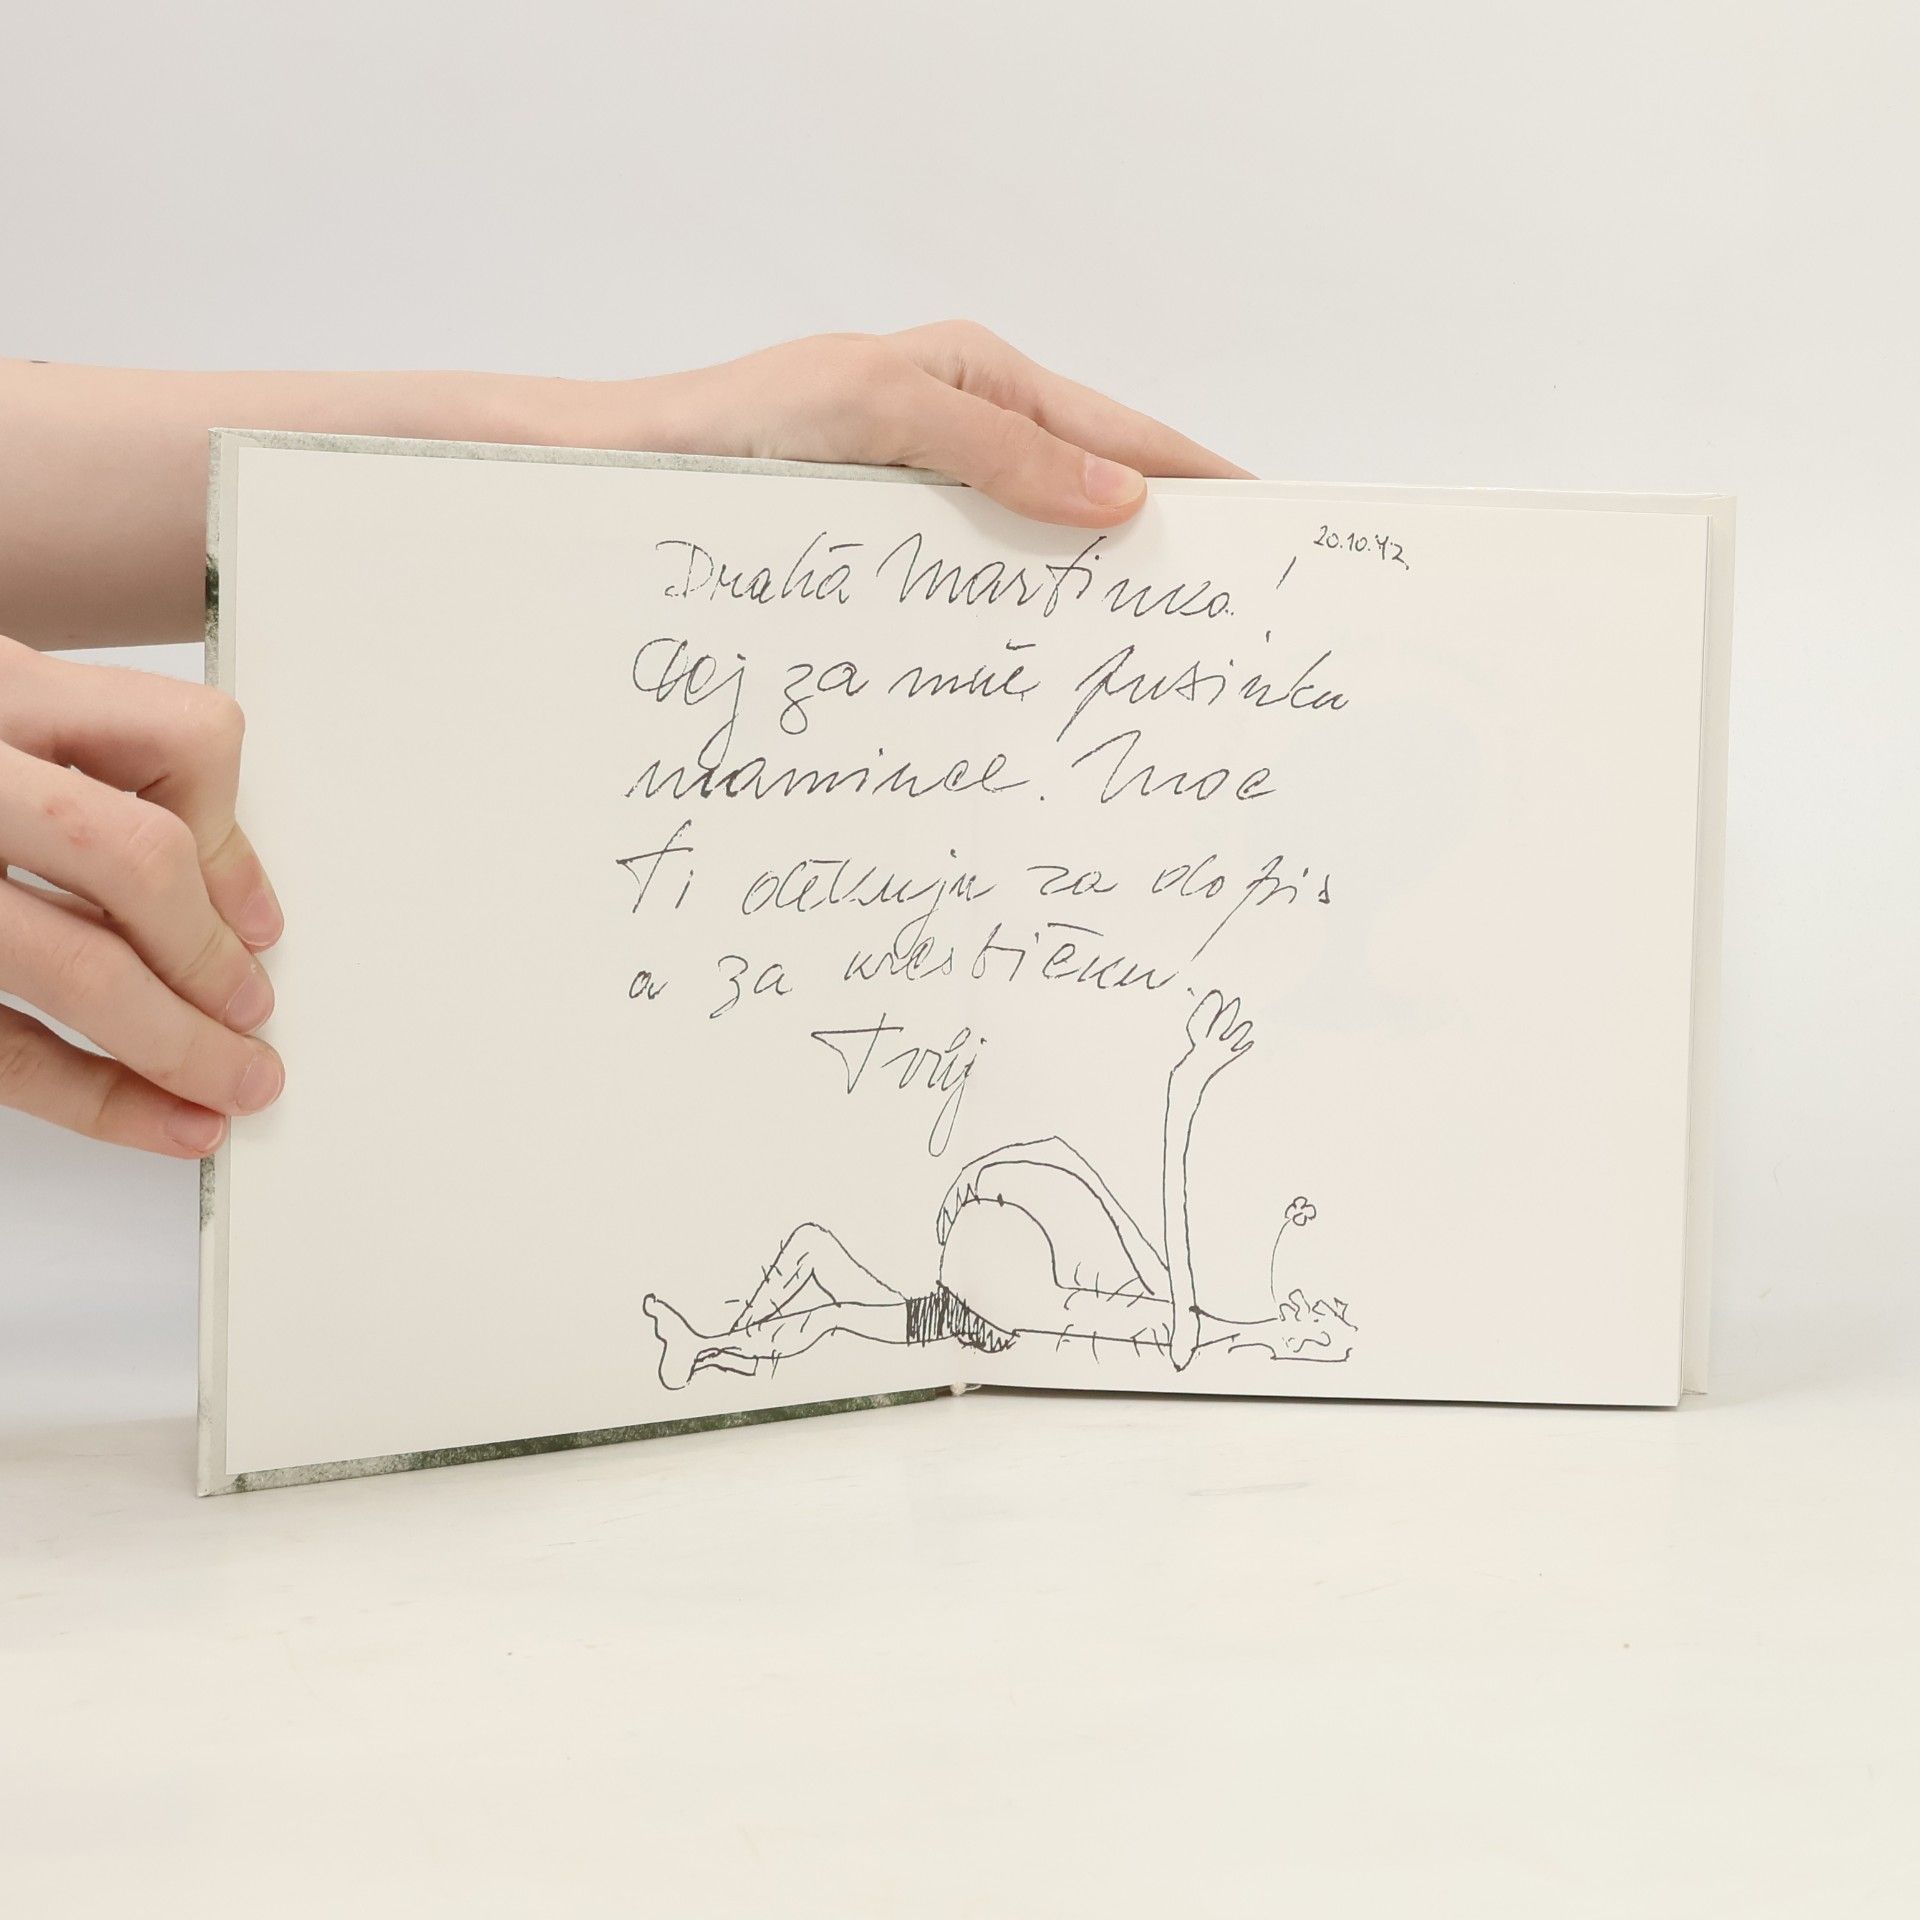 20.10.42
Drahá Martinko!
Dej za mně pusinku
mamince. Moc
Ti děkuju za dopis
a za křestičku.
Tvůj